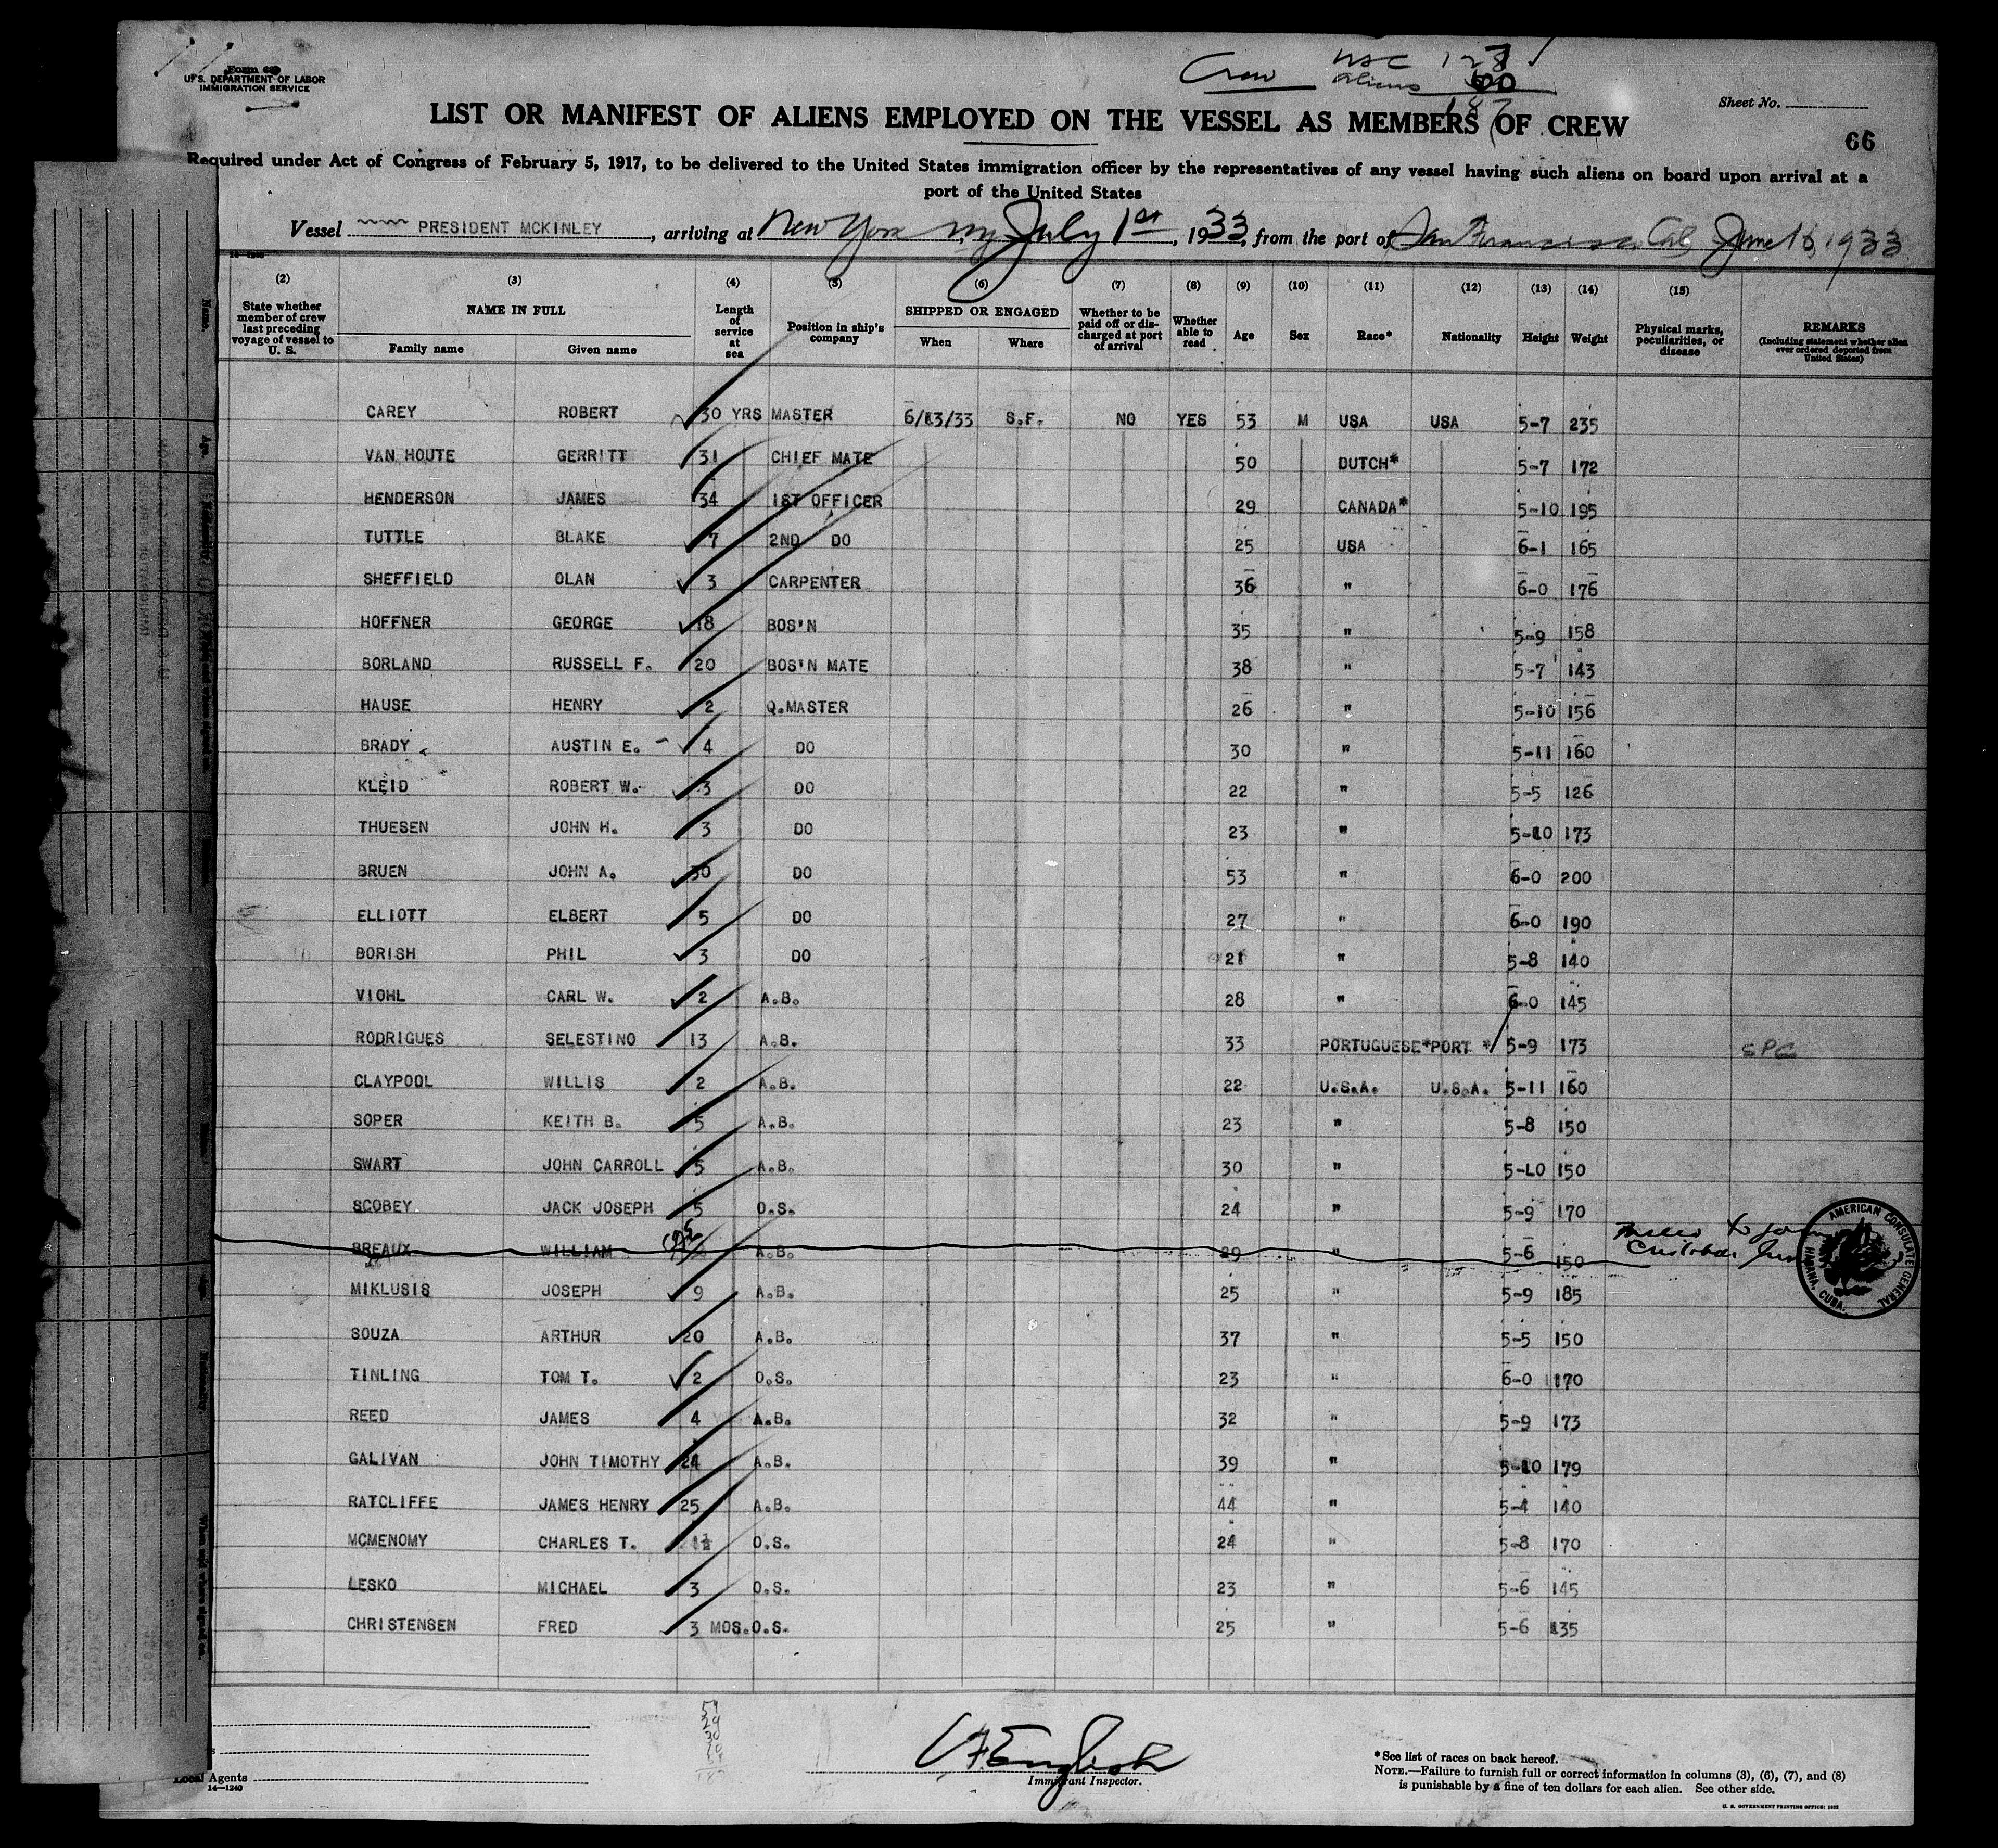 Form 689
U. S. DEPARTMENT OF LABOR
IMMIGRATION SERVICE
Crew USC 127
aliens 60
187
Sheet No.
LIST OR MANIFEST OF ALIENS EMPLOYED ON THE VESSEL AS MEMBERS OF CREW
66
Required under Act of Congress of February 5, 1917, to be delivered to the United States immigration officer by the representatives of any vessel having such aliens on board upon arrival at a
port of the United States
Vessel PRESIDENT MCKINLEY, arriving at New York NY July 1st, 1933, from the port of San Francisco Cal June 16, 1933
14-1240
(2) (3) (4) (5) (6) (7) (8) (9) (10) (11) (12) (13) (14) (15)
State whether member of crew last preceding voyage of vessel to U. S. NAME IN FULL Family name Given name Length of service at sea Position in ship's company SHIPPED OR ENGAGED When Where Whether to be paid off or discharged at port of arrival Whether able to read Age Sex Race* Nationality Height Weight Physical marks, peculiarities, or disease REMARKS (Including statement whether alien ever ordered deported from United States)
CAREY ROBERT 30 YRS MASTER 6/13/33 S.F. NO YES 53 M USA USA 5-7 235
VAN HOUTE GERRITT 31 CHIEF MATE 50 DUTCH* 5-7 172
HENDERSON JAMES 34 1ST OFFICER 29 CANADA* 5-10 195
TUTTLE BLAKE 7 2ND DO 25 USA 6-1 165
SHEFFIELD OLAN 3 CARPENTER 36 " 6-0 176
HOFFNER GEORGE 18 BOS'N 35 " 5-9 158
BORLAND RUSSELL F. 20 BOS'N MATE 38 " 5-7 143
HAUSE HENRY 2 Q.MASTER 26 " 5-10 156
BRADY AUSTIN E. 4 DO 30 " 5-11 160
KLEID ROBERT W. 3 DO 22 " 5-5 126
THUESEN JOHN H. 3 DO 23 " 5-10 173
BRUEN JOHN A. 30 DO 53 " 6-0 200
ELLIOTT ELBERT 5 DO 27 " 6-0 190
BORISH PHIL 3 DO 21 " 5-8 140
VIOHL CARL W. 2 A.B. 28 " 6-0 145
RODRIGUES SELESTINO 13 A.B. 33 PORTUGUESE* PORT * 5-9 173 SPC
CLAYPOOL WILLIS 2 A.B. 22 U.S.A. U.S.A. 5-11 160
SOPER KEITH B. 5 A.B. 23 " 5-8 150
SWART JOHN CARROLL 5 A.B. 30 " 5-10 150
SCOBEY JACK JOSEPH 5 O.S. 24 " 5-9 170
BREAUX WILLIAM A.B. 29 " 5-6 150 Failed to join Cristobal
AMERICAN CONSULATE GENERAL HABANA, CUBA.
MIKLUSIS JOSEPH 9 A.B. 25 " 5-9 185
SOUZA ARTHUR 20 A.B. 37 " 5-5 150
TINLING TOM T. 2 O.S. 23 " 6-0 170
REED JAMES 4 A.B. 32 " 5-9 173
GALIVAN JOHN TIMOTHY 24 A.B. 39 " 5-10 179
RATCLIFFE JAMES HENRY 25 A.B. 44 " 5-4 140
MCMENOMY CHARLES T. 1½ O.S. 24 " 5-8 170
LESKO MICHAEL 3 O.S. 23 " 5-6 145
CHRISTENSEN FRED 3 MOS. O.S. 25 " 5-6 135
Local Agents
14—1240
English
Immigrant Inspector.
*See list of races on back hereof.
NOTE.—Failure to furnish full or correct information in columns (3), (6), (7), and (8)
is punishable by a fine of ten dollars for each alien. See other side.
U. S. GOVERNMENT PRINTING OFFICE: 1932